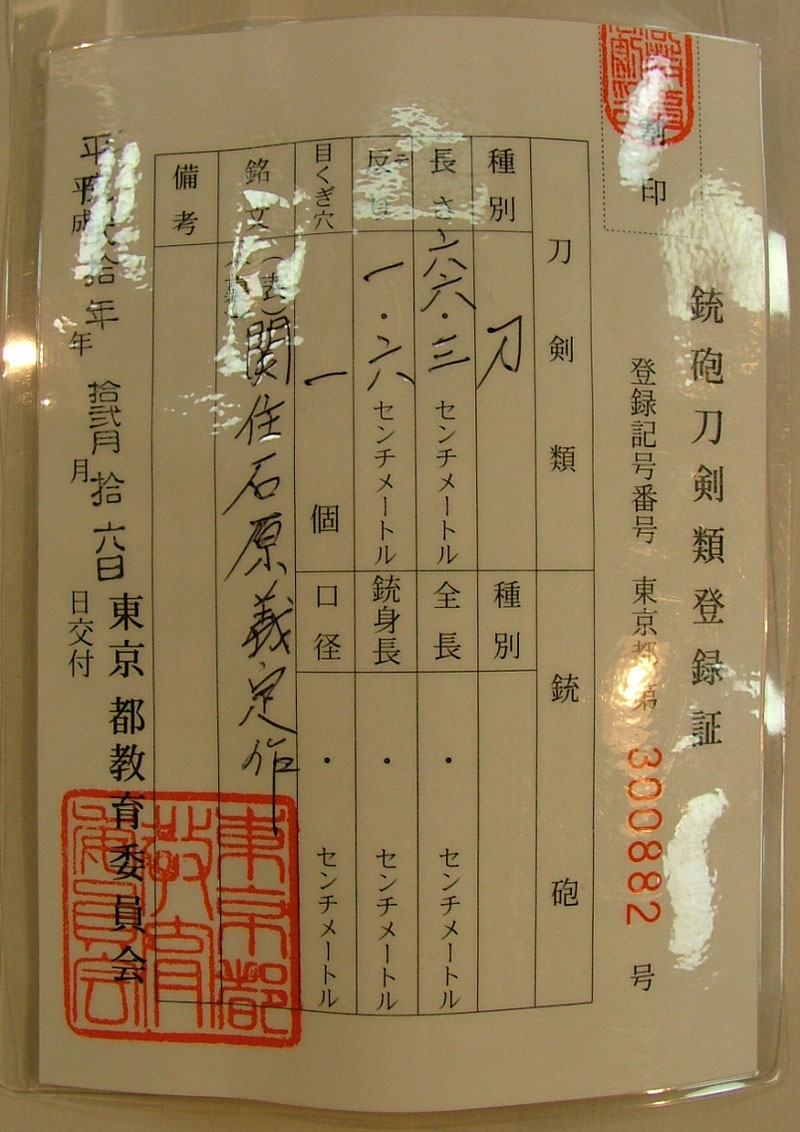 印
銃砲刀剣類登録証
登録記号番号 東京都 第 300882 号
刀剣類
銃砲
種別 刀
種別
長さ 六六・三 センチメートル
全長 ・ センチメートル
反り 一・六 センチメートル
銃身長 ・ センチメートル
目くぎ穴 一 個
口径 ・ センチメートル
銘文 (表) 関住石原義定作
備考
平成 年 拾弐月 拾六日
平成 年 月 日交付
東京都教育委員会
東京都教育委員会